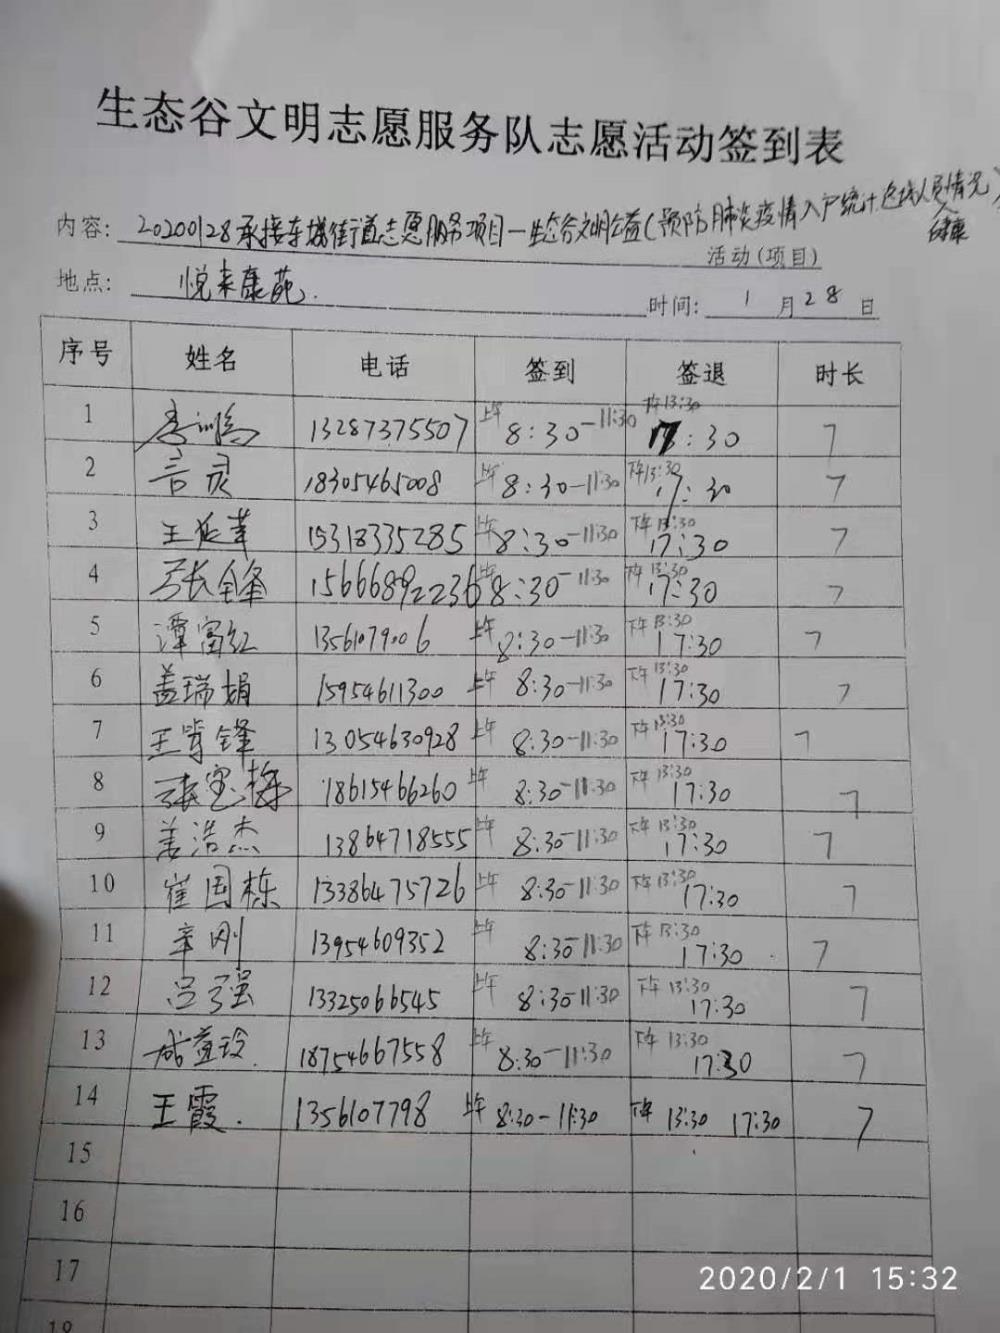 生态谷文明志愿服务队志愿活动签到表
内容: 20200128承接东城街道志愿服务项目—生态谷文明公益(预防肺炎疫情入户统计 人员情况)
健康
活动(项目)
地点: 悦来康苑.
时间: 1 月 28 日
序号 姓名 电话 签到 签退 时长
1 13287375507 上午 8:30-11:30 下午13:30 17:30 7
2 言灵 18305465008 上午 8:30-11:30 下午13:30 17:30 7
3 王延苹 15318335285 上午 8:30-11:30 下午13:30 17:30 7
4 张全锋 15666892236 上午 8:30-11:30 下午13:30 17:30 7
5 谭富红 13561079006 上午 8:30-11:30 下午13:30 17:30 7
6 盖瑞娟 15954611300 上午 8:30-11:30 下午13:30 17:30 7
7 王肖锋 13054630928 上午 8:30-11:30 下午13:30 17:30 7
8 张宝 18615466260 上午 8:30-11:30 下午13:30 17:30 7
9 姜浩杰 13864718555 上午 8:30-11:30 下午13:30 17:30 7
10 崔国栋 13386475726 上午 8:30-11:30 下午13:30 17:30 7
11 辛刚 13954609352 上午 8:30-11:30 下午13:30 17:30 7
12 吕子强 13325066545 上午 8:30-11:30 下午13:30 17:30 7
13 成益玲. 18754667558 上午 8:30-11:30 下午13:30 17:30 7
14 王霞. 1356107798 上午 8:30-11:30 下午 13:30 17:30 7
15
16
17
18
2020/2/1 15:32